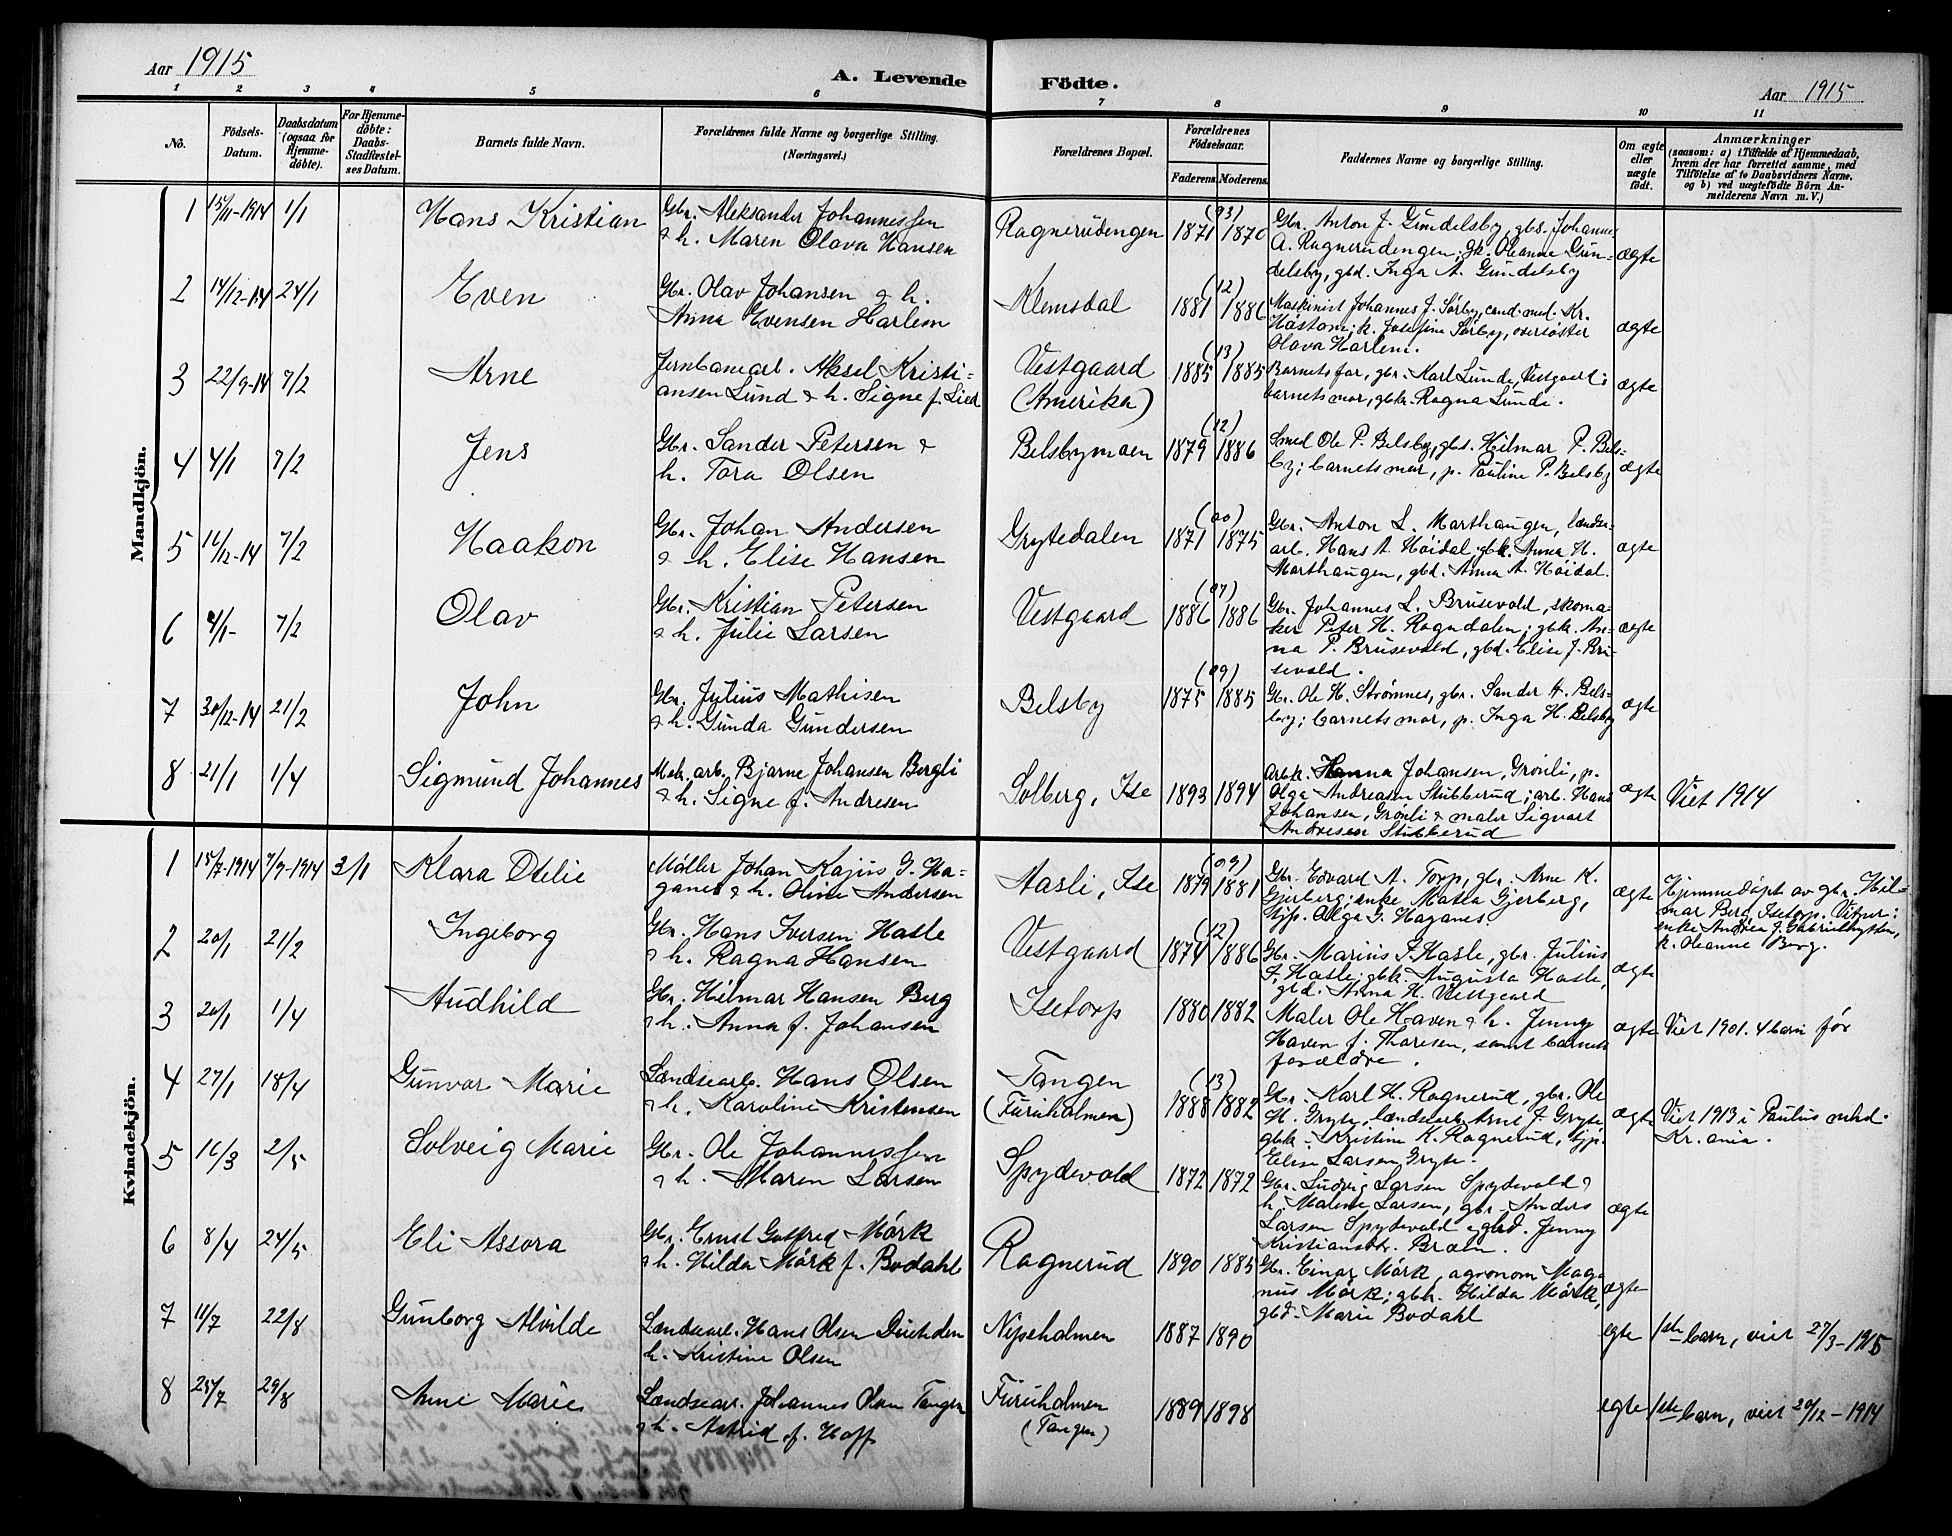 Aar 1915
A. Levende Födte.
Aar 1915
1 2 3 4 5 6 7 8 9 10 11
No.
Födsels-
Datum.
Daabsdatum
(ogsaa for
Hjemme-
döbte).
For Hjemme-
döbte:
Daabs-
Stadfæstel-
ses Datum.
Barnets fulde Navn.
Forældrenes fulde Navne og borgerlige Stilling.
(Næringsvei.)
Forældrenes Bopæl.
Forældrenes
Födselsaar.
Faderens. Moderens.
Faddernes Navne og borgerlige Stilling.
Om ægte
eller
uægte
født.
Anmærkninger
(saasom: a) i Tilfælde af Hjemmedaab,
hvem der har forrettet samme, med
Tilföielse af to Daabsvidners Navne,
og b) ved uægtefödte Börn An-
melderens Navn m. V.)
Mandkjön.
1 15/11-1914 1/1 Hans Kristian
Gbr. Aleksander Johannessen
& h. Maren Olava Hansen
Ragnerudengen 1871 (93) 1870
Gbr. Anton J. Gundelsby, gbs. Johannes
A. Ragnerudengen; gk. Oleanne Gun-
delsby, gbd. Inga A. Gundelsby
ægte
2 14/12-14 24/1 Even
Gbr. Olav Johansen & h.
Anna Evensen Harlem
Klemsdal 1881 (12) 1886
Maskinist Johannes J. Sørby, cand. med. Kr.
Høstom; k. Josefine Sørby, oversøster
Olava Harlem.
ægte
3 22/9-14 7/2 Arne
Jernbanearb. Aksel Kristi-
ansen Lund & h. Signe f. Lied
Vestgaard
(Amerika)
1885 (13) 1885
Barnets far, gbr. Karl Lunde, Vestgaard;
barnets mor, gbk. Ragna Lunde.
ægte
4 4/1 7/2 Jens
Gbr. Sander Petersen &
h. Tora Olsen
Belsbymoen 1879 (12) 1886
Smed Ole P. Belsby, gbs. Hilmar P. Bels-
by; barnets mor, p. Pauline P. Belsby
ægte
5 16/12-14 7/2 Haakon
Gbr. Johan Andersen
& h. Elise Hansen
Grytedalen 1871 (00) 1875
Gbr. Anton L. Marthaugen, lændse-
arb. Hans A. Høidal; gbk. Anna H.
Marthaugen, gbd. Anna A. Høidal.
ægte
6 4/1- 7/2 Olav
Gbr. Kristian Petersen
& h. Julie Larsen
Vestgaard 1886 (07) 1886
Gbr. Johannes L. Brusevold, skoma-
ker Peter H. Ragndalen; gbk. An-
na P. Brusevold, gbd. Elise J. Bru-
sevold.
ægte
7 30/12-14 21/2 John
Gbr. Julius Mathisen
& h. Gunda Gundersen
Belsby 1875 (09) 1885
Gbr. Ole H. Strømnes, gbr. Sander H. Bels-
by; barnets mor, p. Inga H. Belsby
ægte
8 21/1 1/4 Sigmund Johannes
Mek. arb. Bjarne Johansen Bergli
& h. Signe f. Andresen
Solberg, Ise 1893 1894
Arbk. Hanna Johansen, Grønli, p.
Olga Andreasen Stubberud; arb. Hans
Johansen, Grønli & maler Sigvart
Andresen Stubberud
ægte Viet 1914
Kvindekjön.
1 15/7-1914 7/9-1914 3/1 Klara Otelie
Møller Johan Kajus G. Ha-
ganes & h. Oline Andersen
Aasli, Ise 1879 (09) 1881
Gbr. Edvard A. Torp, gbr. Arne K.
Gjerberg; enke Matea Gjerberg,
tjp. Olga G. Haganes
ægte
Hjemmedøpt av gbr. Hil-
mar Berg, Isetorp. Vitner:
enke Andrea J. Gabrielhytten,
k. Oleanne Borg.
2 20/1 21/2 Ingeborg
Gbr. Hans Iversen Hasle
& h. Ragna Hansen
Vestgaard 1874 (12) 1886
Gbr. Marius I. Hasle, gbr. Julius
I. Hasle; gbk. Augusta Hasle,
gbd. Anna H. Vestgaard
ægte
3 20/1 1/4 Audhild
Gbr. Hilmar Hansen Berg
& h. Anna f. Johansen
Isetorp 1880 1882
Maler Ole Haven & h. Jenny
Haven f. Thoresen, samt barnets
forældre.
ægte Viet 1901. 4 barn før
4 27/1 18/4 Gunvor Marie
Lændsearb. Hans Olsen
& h. Karoline Kristensen
Tangen
(Furuholmen)
1888 (13) 1882
Gbr. Karl H. Ragnerud, gbr. Ole
H. Gryte, lændsearb. Arne J. Gryte,
gbk. Kristine K. Ragnerud, tjp.
Elise Larsen Gryte.
ægte
Viet 1913 i Paulus mhd.
Kr.ania.
5 16/3 2/5 Solveig Marie
Gbr. Ole Johannessen
& h. Maren Larsen
Spydevold 1872 1872
Gbr. Ludvig Larsen Spydevold &
h. Malene Larsen, gbr. Anders
Larsen Spydevold & gbd. Jenny
Kristiansdtr. Braten.
ægte
6 8/4 24/5 Eli Assora
Gbr. Ernst Gotfred Mørk
& h. Hilda Mørk f. Bodahl
Ragnerud 1890 1885
Gbr. Einar Mørk, agronom Mag-
nus Mørk; gbk. Hilda Mørk,
gbd. Marie Bodahl
ægte
7 11/7 22/8 Gunborg Alvilde
Lændsearb. Hans Olsen
h. Kristine Olsen
Nipeholmen 1887 1890
egte 1ste barn, viet 27/3-1915
8 25/7 29/8 Anne Marie
Lændsearb. Johannes Olsen Tangen
& h. Astrid f. Hoff
Furuholmen
(Tangen)
1889 1898
egte 1ste barn, viet 20/12-1914